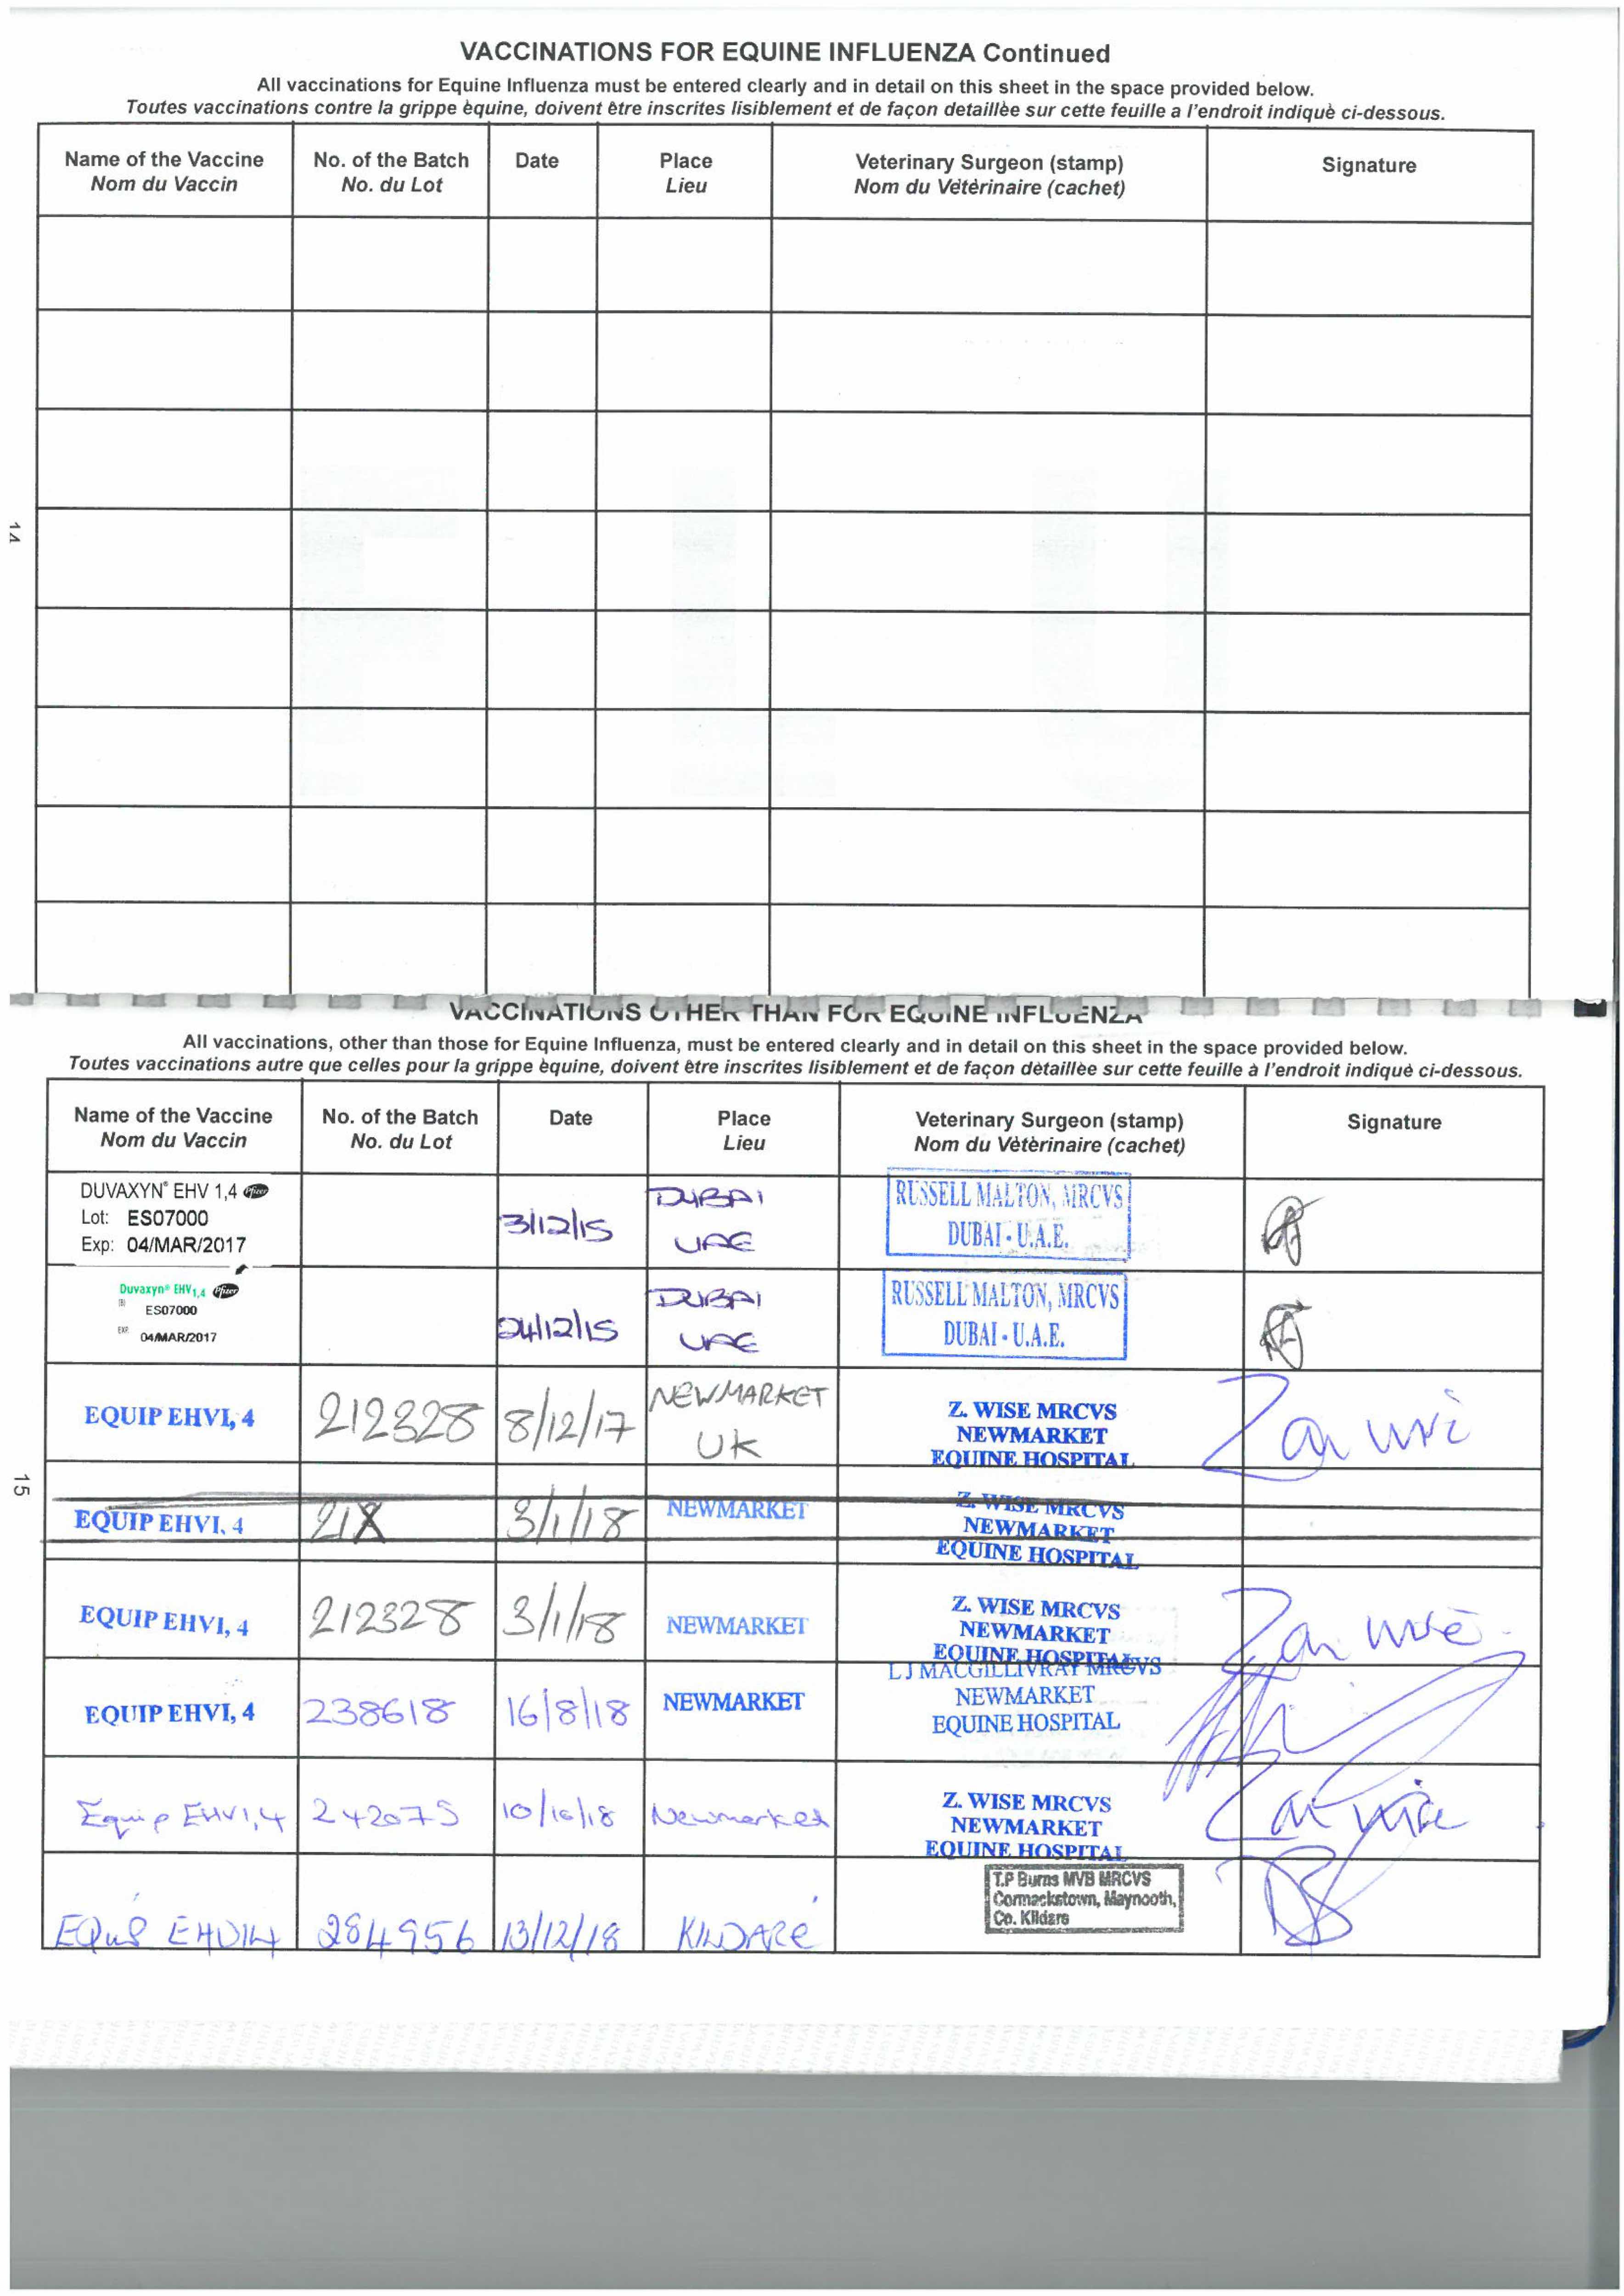 VACCINATIONS FOR EQUINE INFLUENZA Continued
All vaccinations for Equine Influenza must be entered clearly and in detail on this sheet in the space provided below.
Toutes vaccinations contre la grippe èquine, doivent être inscrites lisiblement et de façon detaillèe sur cette feuille a l'endroit indiquè ci-dessous.
Name of the Vaccine No. of the Batch Date Place Veterinary Surgeon (stamp) Signature
Nom du Vaccin No. du Lot Lieu Nom du Vetèrinaire (cachet)
14
VACCINATIONS OTHER THAN FOR EQUINE INFLUENZA
All vaccinations, other than those for Equine Influenza, must be entered clearly and in detail on this sheet in the space provided below.
Toutes vaccinations autre que celles pour la grippe èquine, doivent être inscrites lisiblement et de façon dètaillèe sur cette feuille à l'endroit indiquè ci-dessous.
Name of the Vaccine No. of the Batch Date Place Veterinary Surgeon (stamp) Signature
Nom du Vaccin No. du Lot Lieu Nom du Vètèrinaire (cachet)
DUVAXYN® EHV 1,4 Pfizer DUBAI RUSSELL MALTON, MRCVS
Lot: ES07000 3/12/15
Exp: 04/MAR/2017 UAE DUBAI - U.A.E.
Duvaxyn® EHV1,4 Pfizer DUBAI RUSSELL MALTON, MRCVS
ES07000 24/12/15
EXP. 04/MAR/2017 UAE DUBAI - U.A.E.
EQUIP EHVI, 4 212328 8/12/17 NEWMARKET Z. WISE MRCVS
UK NEWMARKET
EQUINE HOSPITAL
15
EQUIP EHVI, 4 21X 3/1/18 NEWMARKET Z. WISE MRCVS
NEWMARKET
EQUINE HOSPITAL
EQUIP EHVI, 4 212328 3/1/18 NEWMARKET Z. WISE MRCVS
NEWMARKET
EQUINE HOSPITAL
L J MACGILLIVRAY MRCVS
EQUIP EHVI, 4 238618 16/8/18 NEWMARKET NEWMARKET
EQUINE HOSPITAL
Equip EHV1,4 242075 10/10/18 Newmarket Z. WISE MRCVS
NEWMARKET
EQUINE HOSPITAL
T.P Burns MVB MRCVS
Cormackstown, Maynooth,
Co. Kildare
EQUIP EHV14 284956 13/12/18 KILDARE